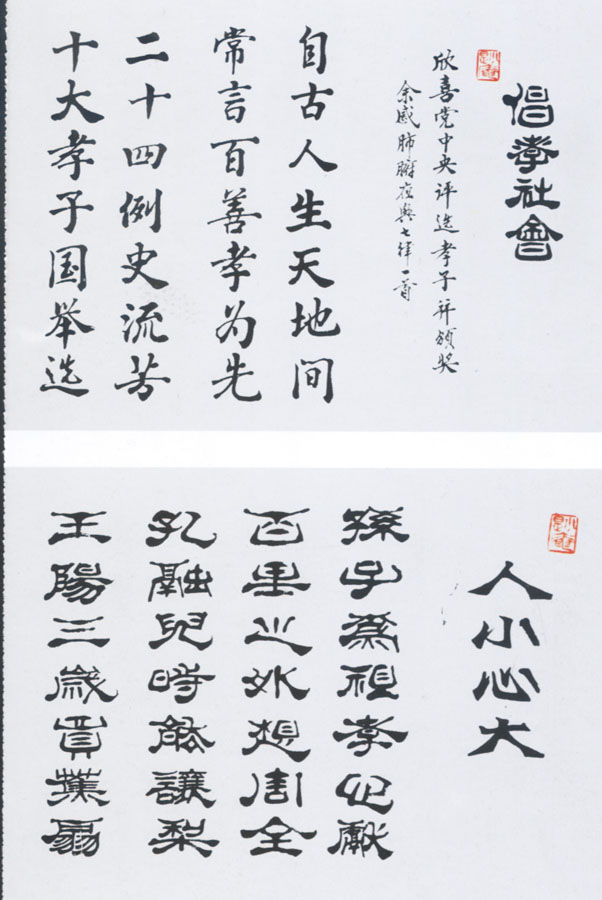 倡孝社會
欣喜党中央评选孝子并颁奖
余感肺腑七律一首
自古人生天地间
常言百善孝为先
二十四例史流芳
十大孝子国举选
人小心大
孫子為祖孝心獻
百里之外想周全
孔融兒時能讓梨
王陽三歲蕉扇